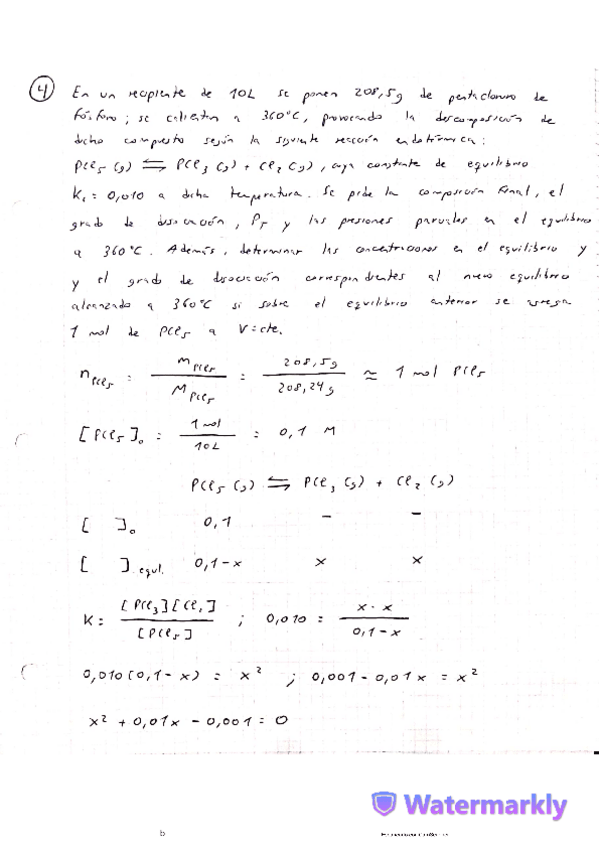 4 En un recipiente de 10L se ponen 208,5g de pentacloruro de
fósforo; se calientan a 360°C, provocando la descomposición de
dicho compuesto según la siguiente reacción endotérmica:
PCl5 (g) ⇆ PCl3 (g) + Cl2 (g), cuya constante de equilibrio
Kc = 0,010 a dicha temperatura. Se pide la composición final, el
grado de disociación, PT y las presiones parciales en el equilibrio
a 360°C. Además, determinar las concentraciones en el equilibrio y
y el grado de disociación correspondientes al nuevo equilibrio
alcanzado a 360°C si sobre el equilibrio anterior se agrega
1 mol de PCl5 a V=cte.
nPCl5 = mPCl5 / MPCl5 = 208,5g / 208,24g ≈ 1 mol PCl5
[PCl5]o = 1 mol / 10L = 0,1 M
PCl5 (g) ⇆ PCl3 (g) + Cl2 (g)
[ ]o 0,1 - -
[ ] equl. 0,1-x x x
K = [PCl3][Cl2] / [PCl5] ; 0,010 = x·x / 0,1-x
0,010(0,1-x) = x² ; 0,001-0,01x = x²
x² + 0,01x - 0,001 = 0
Watermarkly